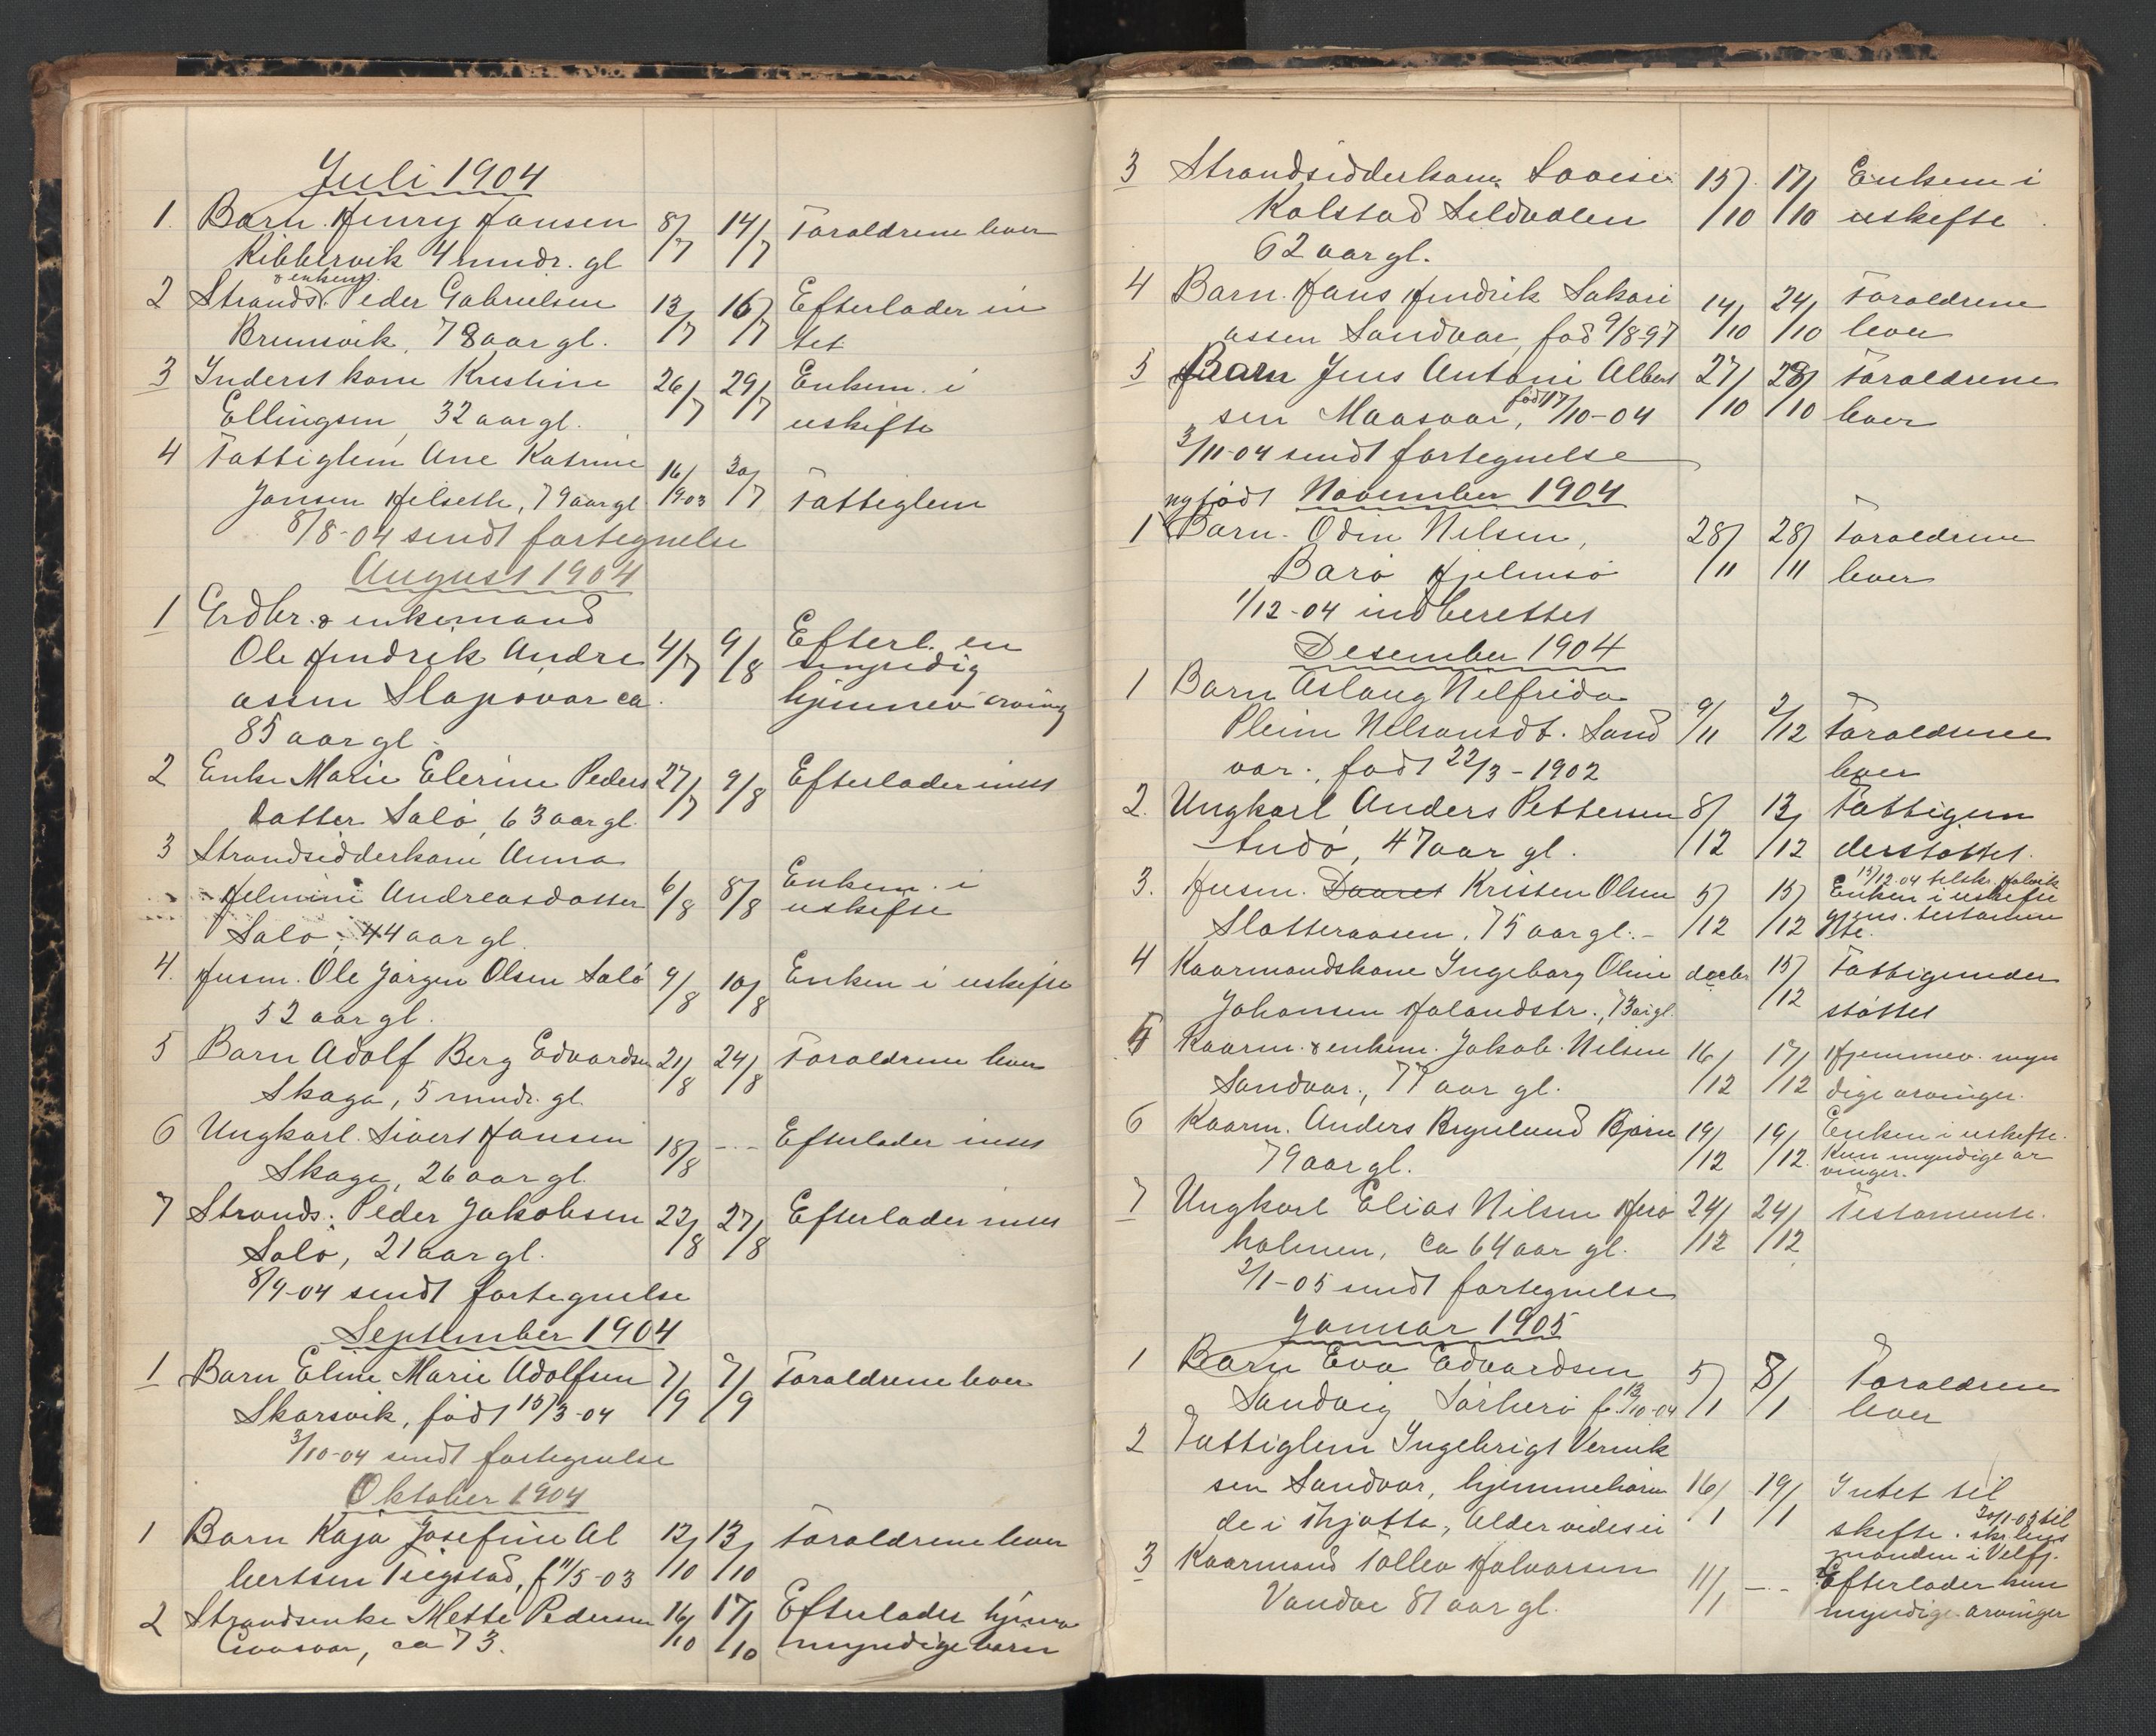 Juli 1904
1. Barn. Henry Hansen 8/7 14/7 Foraldrene lever
Ribbervik 4 mndr. gl
& enkem.
2 Strands. Peder Gabrielsen 13/7 16/7 Efterlader in
Brunsvik, 78 aar gl. tet
3 Inderst kone Kristine 26/7 29/7 Enkem. i
Ellingsen, 32 aar gl. uskifte
4 Fattiglem Ane Katrine 16/ 30/7
Jansen Helseth, 79 aar gl 1903 Fattiglem
8/8-04 sendt fortegnelse
August 1904
1 Grdbr. & enkemand
Ole Hendrik Andre 4/7 9/8 Efterl. en
assen Slapøvar ca. umyndig
85 aar gl. hjemmev arving
2 Enke Marie Elerine Peders 27/7 9/8 Efterlader intet
datter Salø, 63 aar gl.
3 Strandsidderkone Anna
Helmine Andreasdatter 6/8 8/8 Enkem. i
Salø, 44 aar gl. uskifte
4. Husm. Ole Jørgen Olsen Salø 9/8 10/8 Enken i uskifte
52 aar gl.
5 Barn Adolf Berg Edvardsen 21/8 24/8 Foraldrene lever
Skaga, 5 mndr. gl.
6 Ungkarl. Sivert Hansen 18/8 -.- Efterlader intet
Skaga, 26 aar gl.
7 Strands. Peder Jakobsen 22/8 27/8 Efterlader intet
Salø, 21 aar gl.
8/9-04 sendt fortegnelse
September 1904
1 Barn Eline Marie Adolfsen 7/9 7/9 Foraldrene lever
Skarsvik, født 15/3-04
3/10-04 sendt fortegnelse
Oktober 1904
1 Barn Kaja Josefine Al 12/10 13/10 Foraldrene lever
bertsen Teigstad, f 11/5-03
2 Strandsenke Mette Pedersen 16/10 17/10 Efterlader hjemv
Gaasvær, ca 73. myndige børn
3 Strandsidderkone Lovise 15/10 17/10 Enkem i
Kolstad Sildvalen uskifte
62 aar gl.
4 Barn. Hans Hendrik Sakari 14/10 24/10 Foraldrene
assen Sandvær, fød 9/8-97 lever
5 Barn Jens Antoni Albert 27/10 28/10 Foraldrene
sen Maasvær, født 17/10-04 lever
3/11-04 sendt fortegnelse
November 1904
nyfødt
1 Barn. Odin Nilsen, 28/11 28/11 Foraldrene
Barø Hjelmsø lever
1/12-04 indberettet
Desember 1904
1 Barn Aslaug Nilfrida
Pleim Nelsonsdt. Sand 9/11 2/12 Foraldrene
vær., født 22/3-1902 lever
2. Ungkarl Anders Pettersen 8/12 13/12 Fattigun
Andø, 47 aar gl. derstøttet.
13/12-04 tilsk.
3. Husm. Daaret Kristen Olsen 5/12 15/12 Enken i uskifte
Slotteraasen, 75 aar gl. - gjens. testamen
te.
4 Kaarmandskone Ingeborg Oline decbr 15/12 Fattigunder
Johansen Halandstr., 73 a gl. støttet
5 Kaarm. & enkem. Jakob. Nilsen 16/12 17/12 Hjemmev. myn
Sandvær., 77 aar gl. dige arvinger.
6 Kaarm. Anders Brynlund Bjørn 19/12 19/12. Enken i uskifte.
79 aar gl. Kun myndige ar
vinger.
7 Ungkarl Elias Nilsen Herø 24/12 24/12 Testamente.
holmen, ca 64 aar gl.
2/1-05 sendt fortegnelse
Januar 1905
1 Barn Eva Edvardsen 5/1 8/1 Foraldrene
Sandvig Sørherø f. 13/10-04 lever
2 Fattiglem Ingebrigt Vernik
sen Sandvær, hjemmehøren 16/1 19/1 Intet til
de i Thjøtta, Alder vides ei skifte. 30/1-05 til
skr. lens
manden i Velfj.
3 Kaarmand Tollev Halvorsen 11/1 -.- Efterlader kun
Vandve 81 aar gl. myndige arvinger